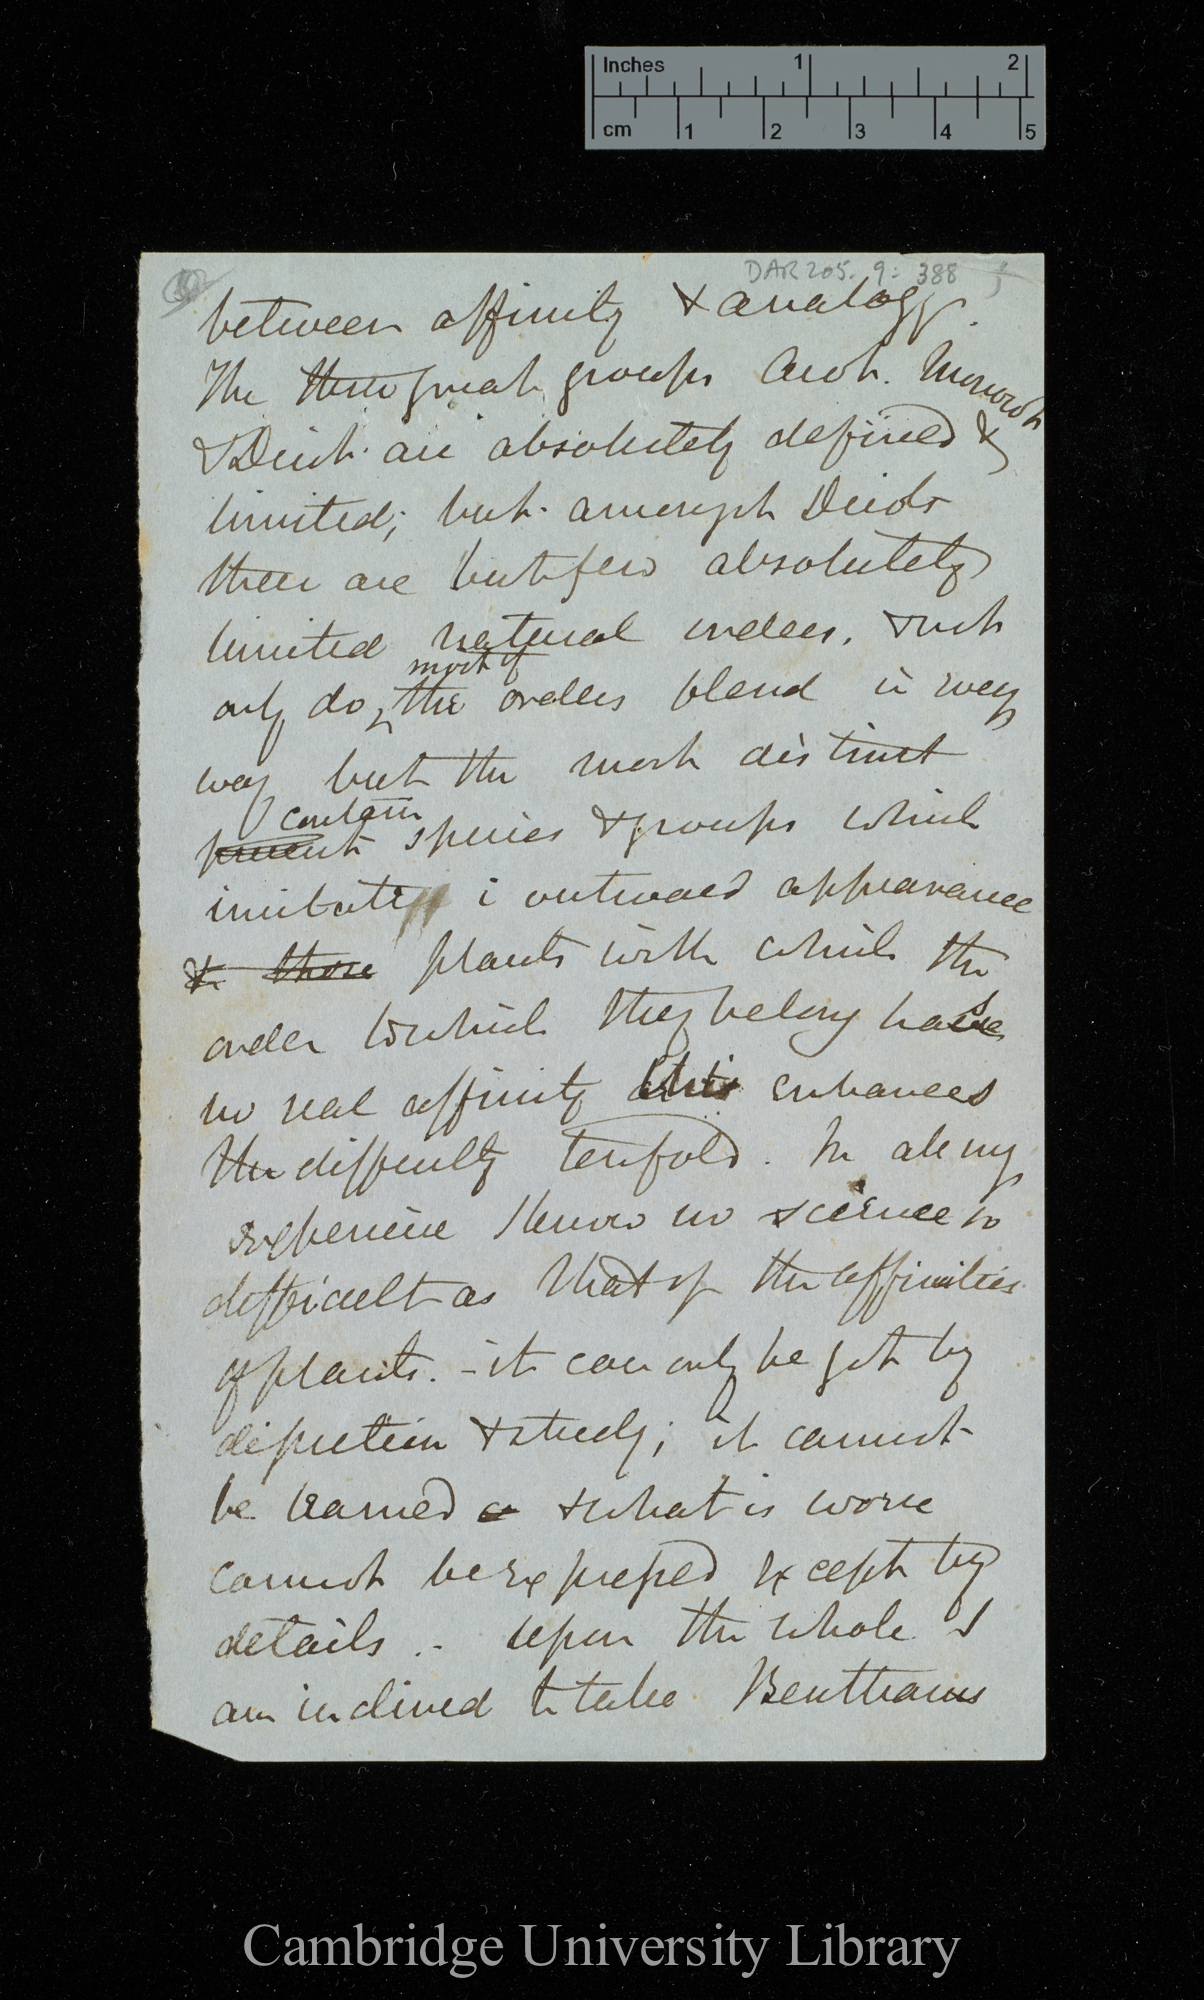 Inches 1 2
cm 1 2 3 4 5
DAR 205. 9: 388
between affinity & analogy.
The three great groups Acot. Monocot
& Dicot. are absolutely defined &
limited; but amongst Dicots
there are but few absolutely
limited natural orders, & not
only do most of the orders blend in every
way but the most distinct
present contain species & groups which
imitate i outward appearance
& those plants with which the
order to which they belong has
no real affinity this enhances
the difficulty tenfold. In all my
experience I know no science so
difficult as that of the affinities
of plants. – it can only be got by
dissection & study; it cannot
be learned & what is worse
cannot be expressed except by
details. – Upon the whole I
am inclined to take Benthams
Cambridge University Library